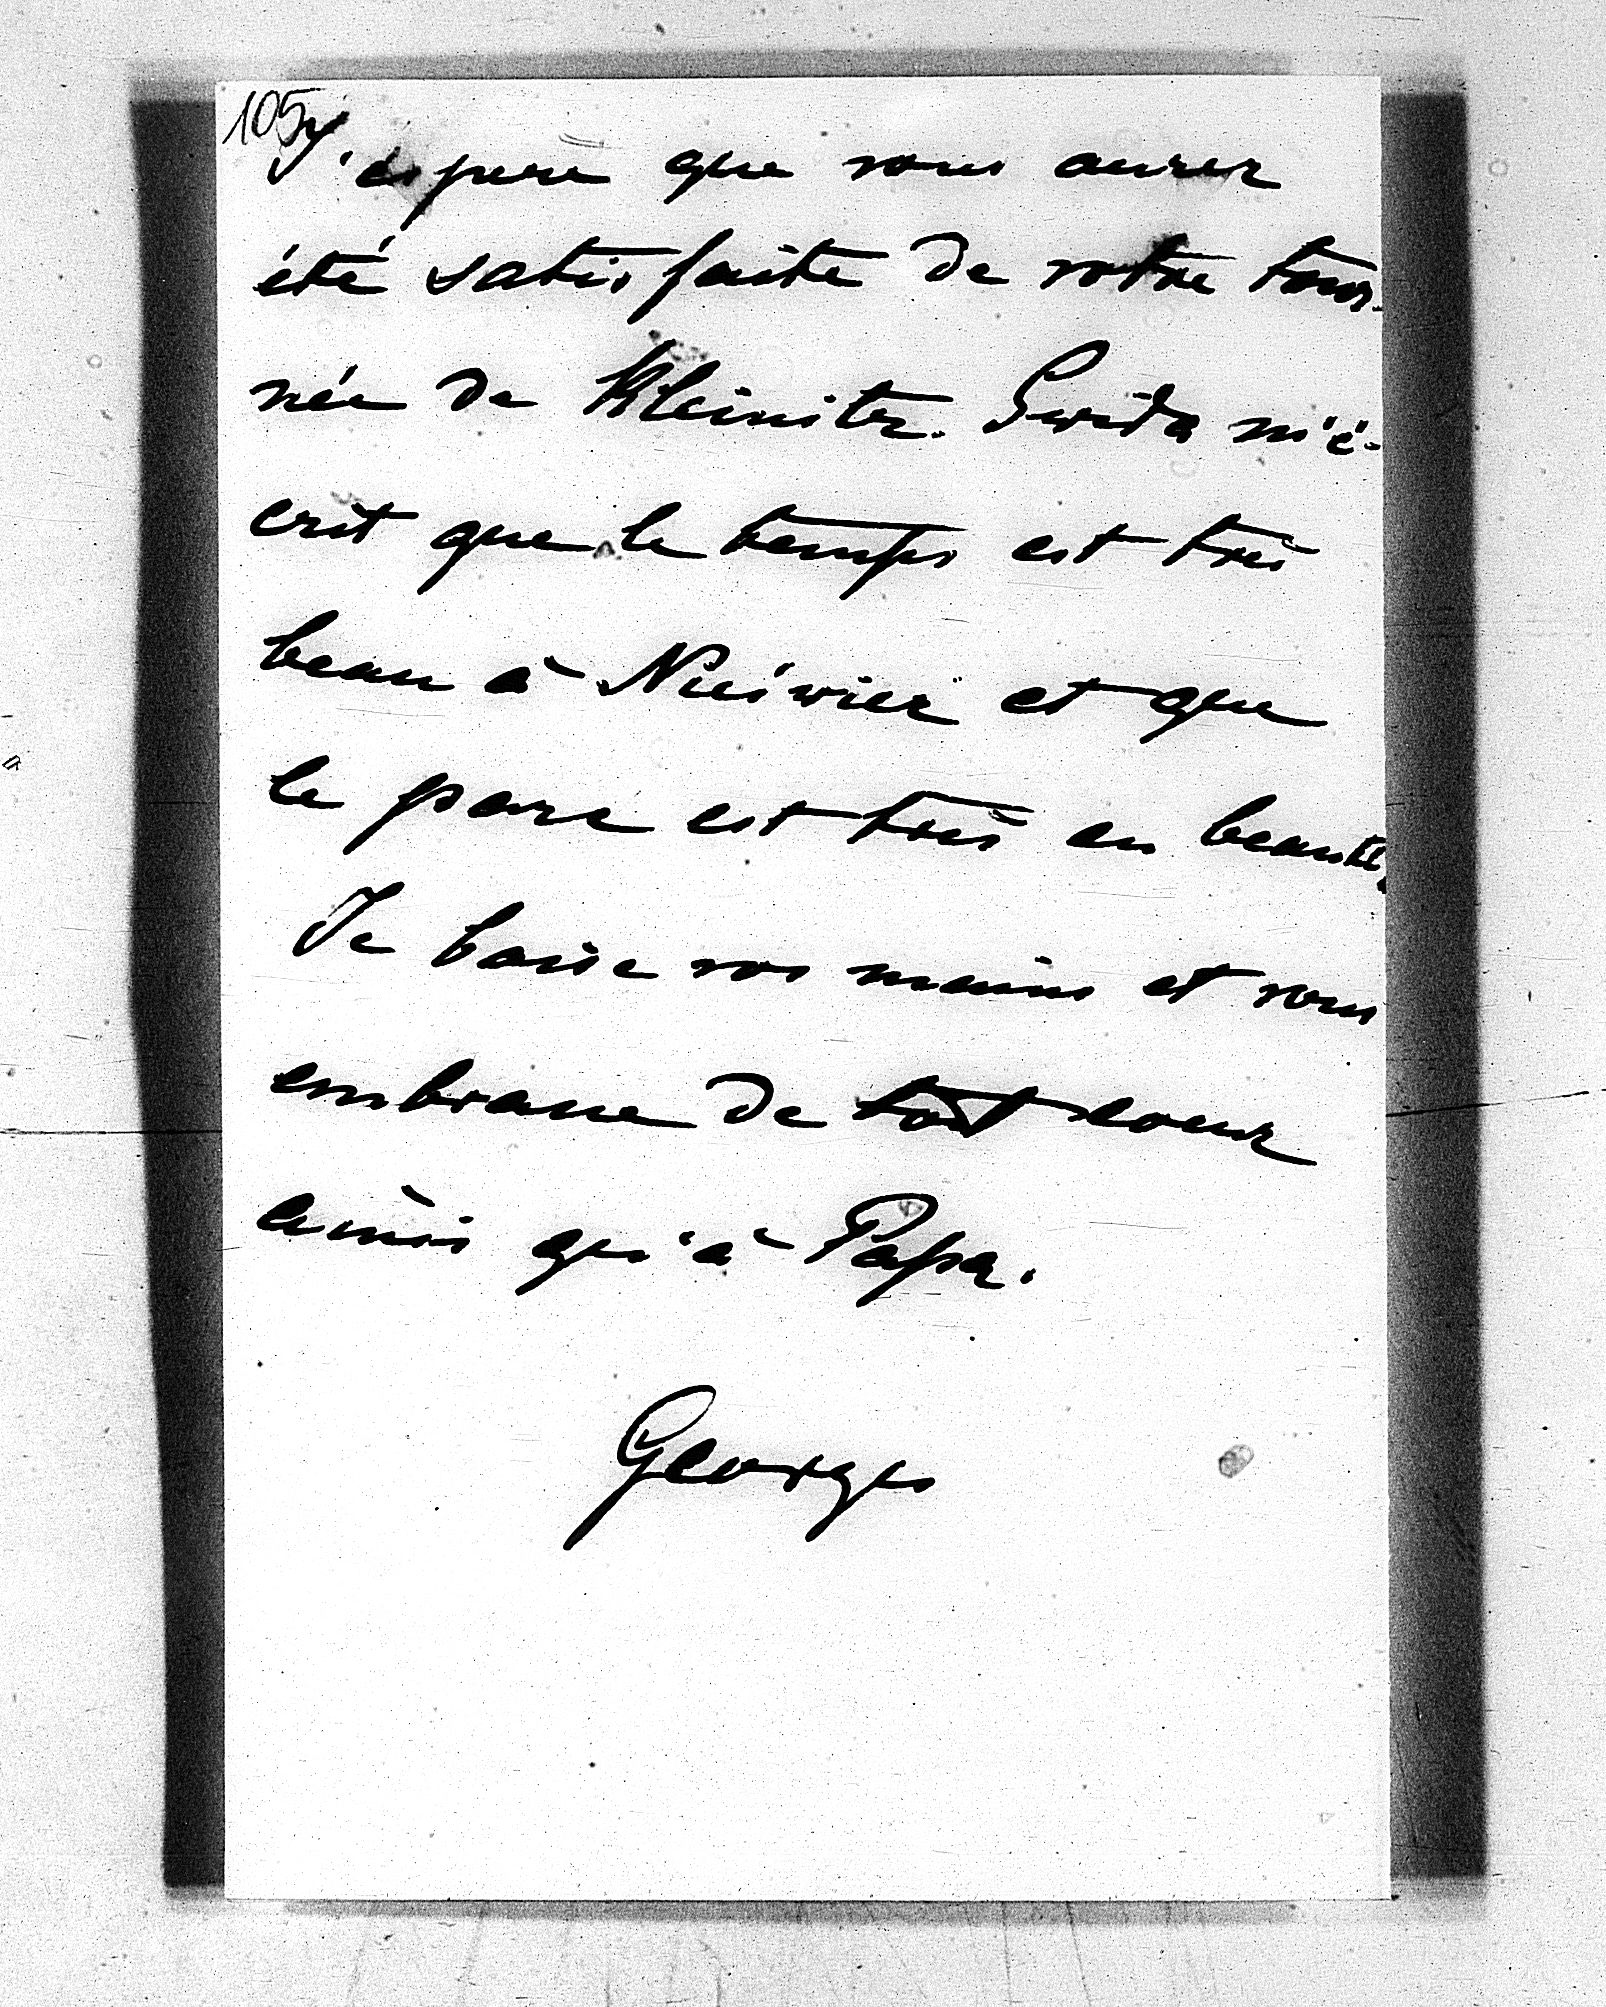 105
J'éspere que vous aurez
été satisfaite de votre tour-
née de Kleinitz. Swida m'é-
crit que le temps est très
beau à Nieświez et que
le parc est très en beauté.
Je baise vos mains et vous
embrasse de tout coeur
ainsi qu'à Papa.
Georges